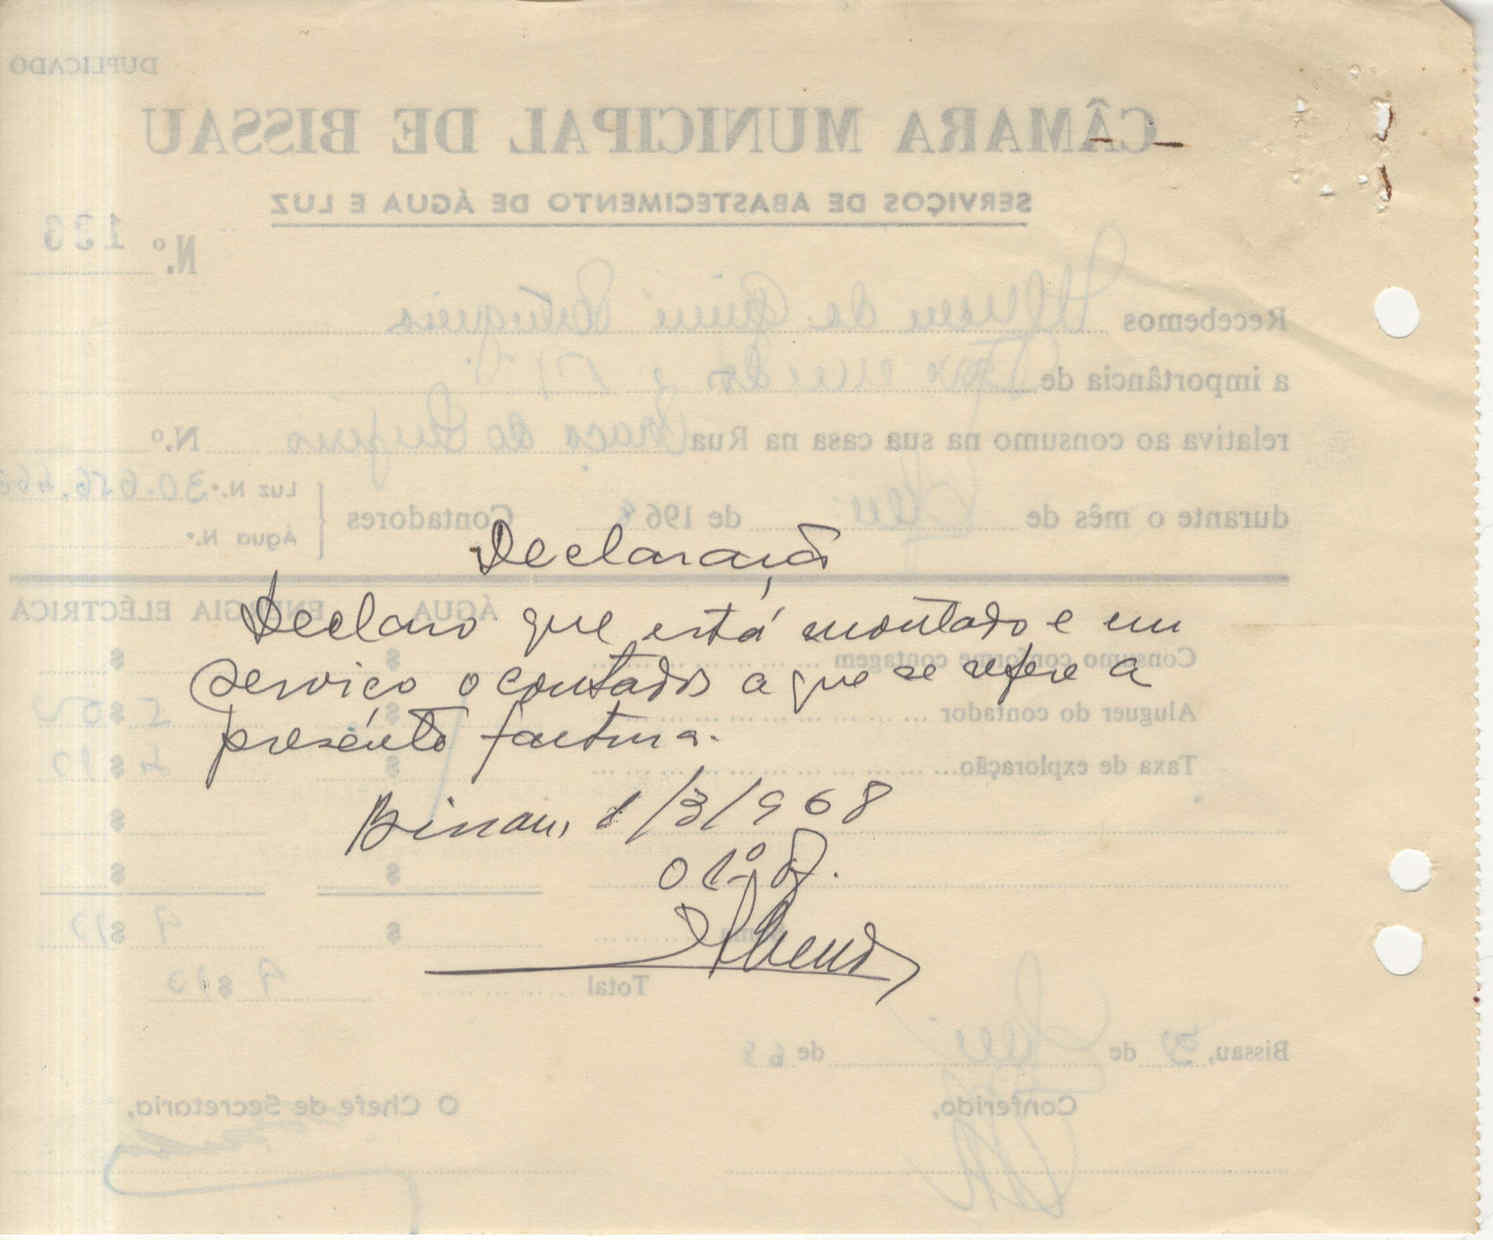 Declaração
Declaro que está montado e em
serviço o contador a que se refere a
presente factura.
Bissau, 1/3/968
O 1º Of.
DUPLICADO
CÂMARA MUNICIPAL DE BISSAU
SERVIÇOS DE ABASTECIMENTO DE ÁGUA E LUZ
N.º 136
Recebemos Museu da Guiné Portuguesa
a importância de
relativa ao consumo na sua casa na Rua Praça do Império N.º
Luz N.º 30.656.466
durante o mês de de 196 Contadores
Água N.º
ÁGUA ENERGIA ELÉCTRICA
Consumo conforme contagem $ $
Aluguer do contador $ 5$0
Taxa de exploração $ 4$10
$
$ $
Soma $ 9$10
Total 9$10
Bissau, de de 68
Conferido, O Chefe de Secretaria,